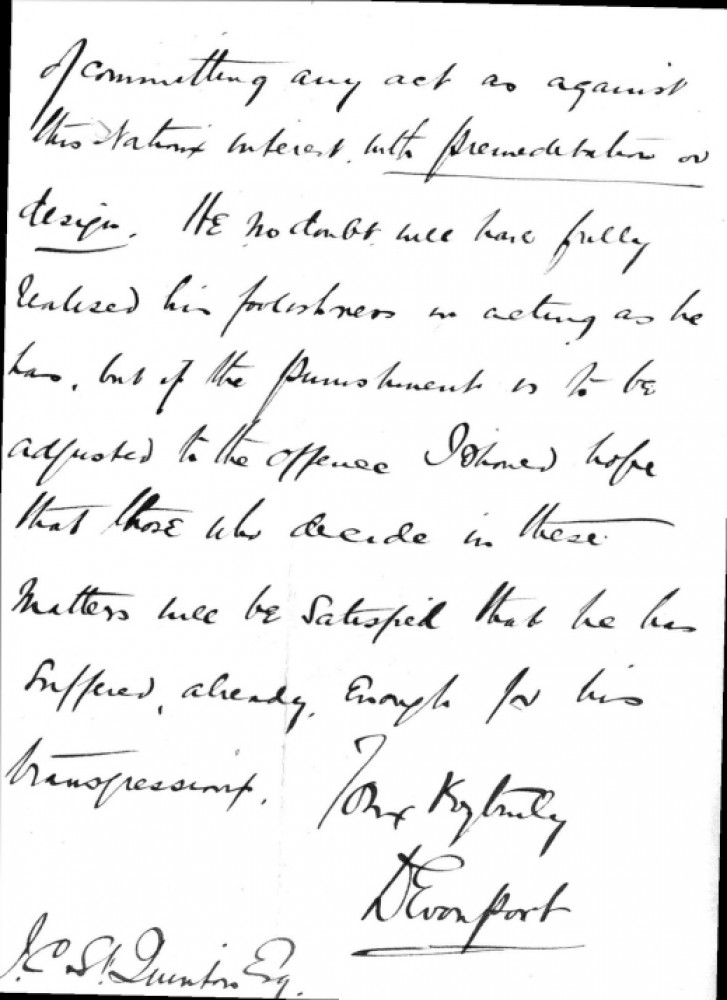 of committing any act as against
this Nation's interest, with premeditation or
design. He no doubt will have fully
realised his foolishness in acting as he
has, but if the punishment is to be
adjusted to the offence I should hope
that those who decide in these
matters will be satisfied that he has
suffered, already, enough for his
transgressions.
Yours truly
Devonport
J.C. St. Quintin Esq.